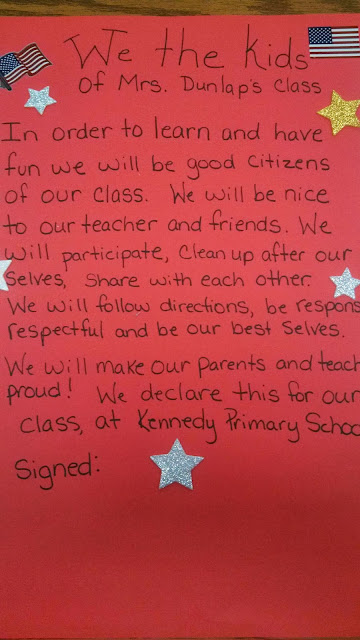 We the Kids
of Mrs. Dunlap's Class
In order to learn and have
fun we will be good Citizens
of our class. We will be nice
to our teacher and friends. We
will participate, Clean up after our
Selves, Share with each other.
We will follow directions, be respons
respectful and be our best Selves.
We will make our parents and teach
proud! We declare this for our
Class, at Kennedy Primary Schoo
Signed: